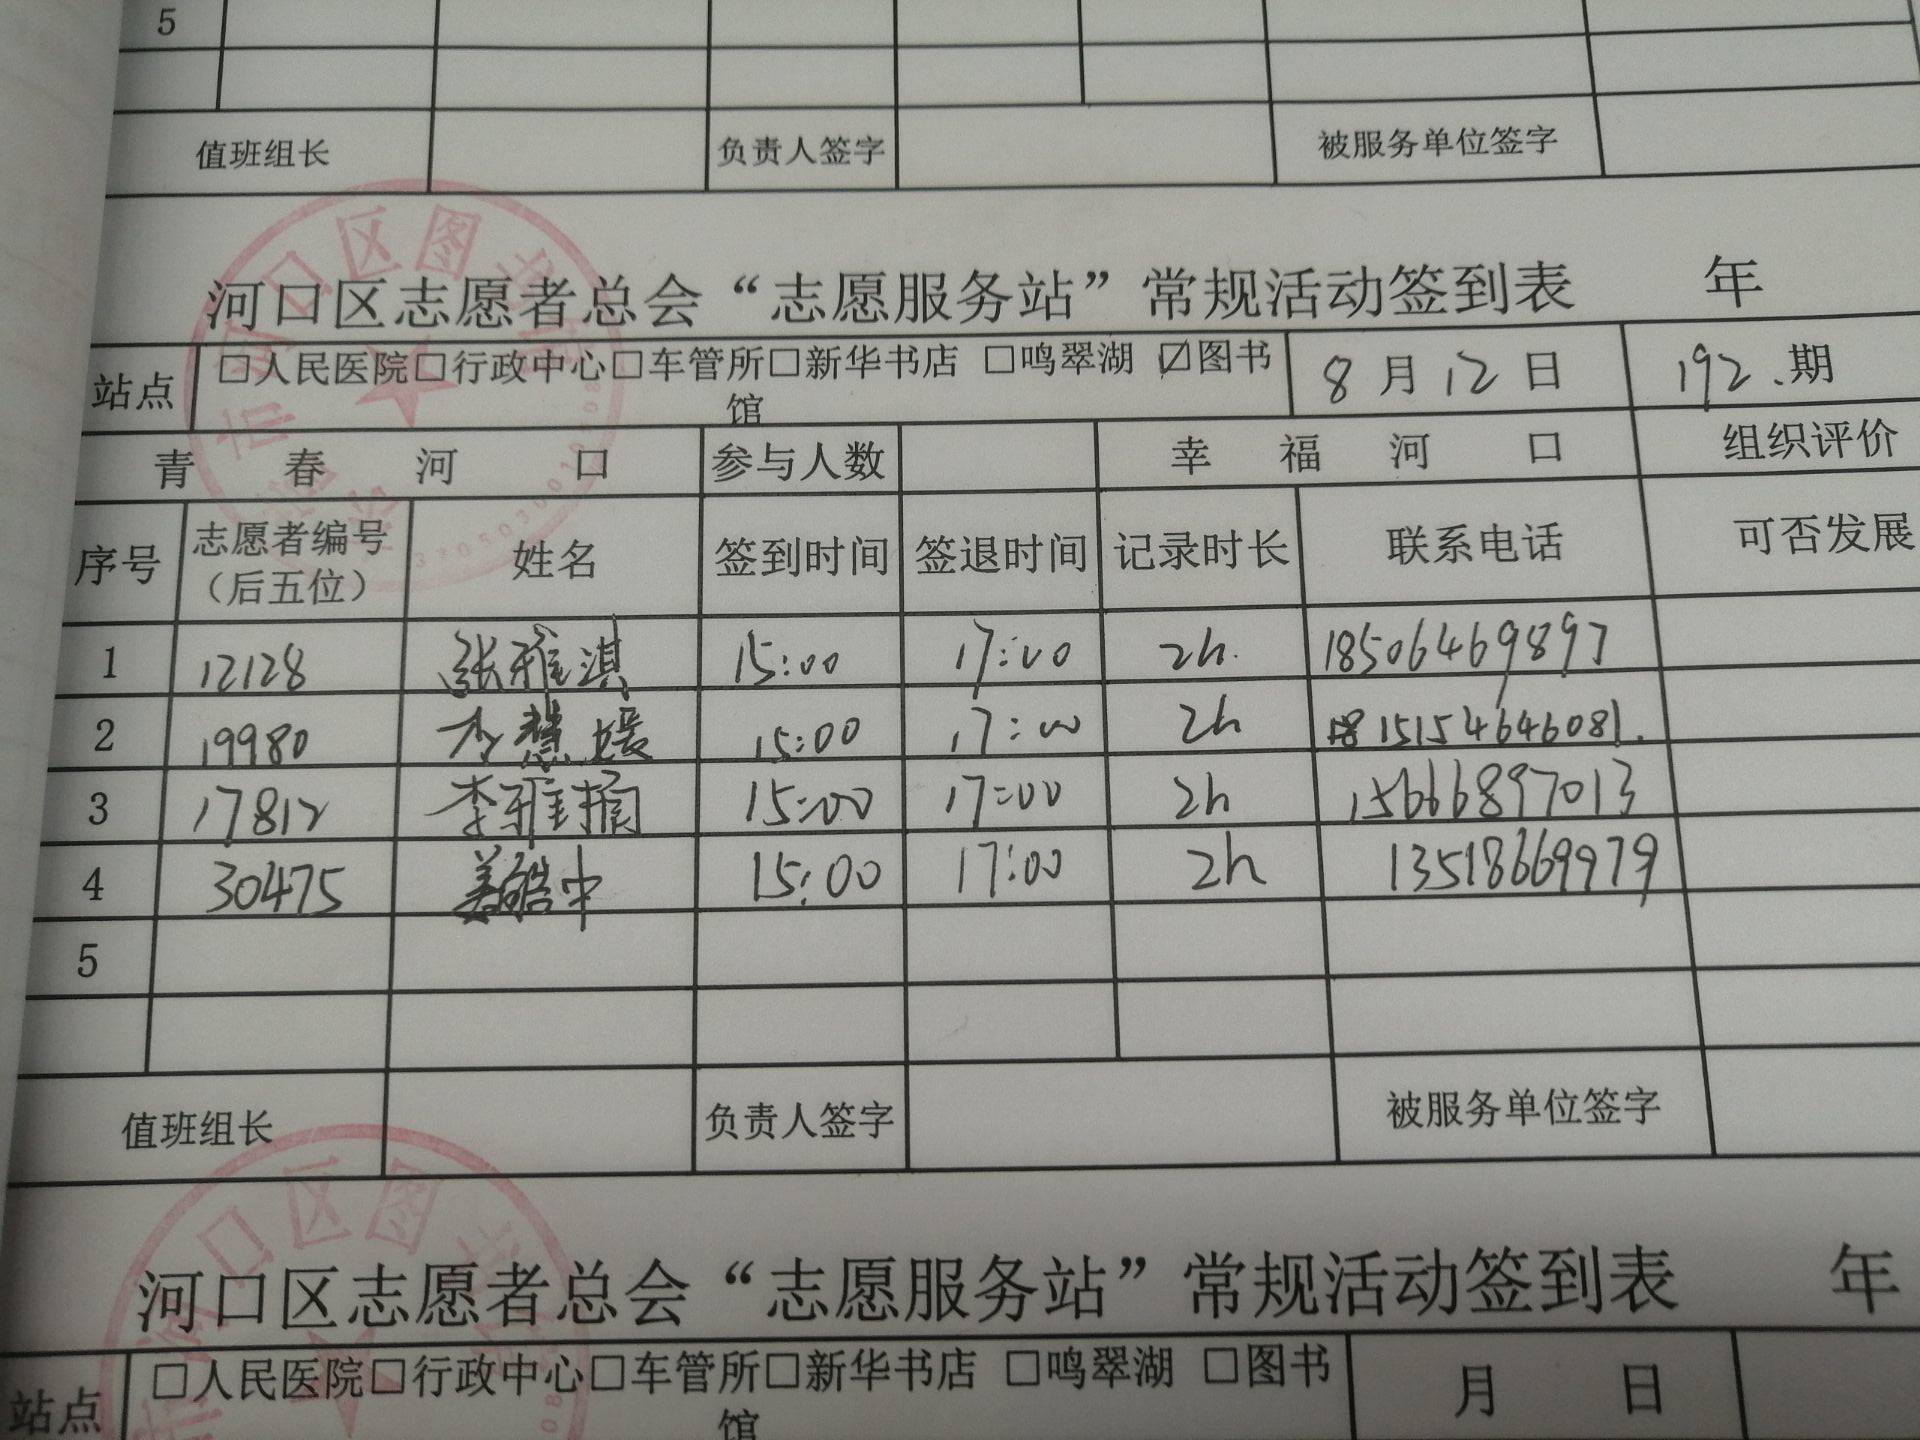 5
值班组长 负责人签字 被服务单位签字
河口区志愿者总会“志愿服务站”常规活动签到表 年
站点 □人民医院□行政中心□车管所□新华书店 □鸣翠湖 ☑图书馆 8月12日 192.期
青春河口 参与人数 幸福河口 组织评价
序号 志愿者编号（后五位） 姓名 签到时间 签退时间 记录时长 联系电话 可否发展
1 12128 张雅淇 15:00 17:00 2h. 18506469897
2 19980 李慧媛 15:00 17:00 2h 15154646081.
3 17812 李雅 15:00 17:00 2h 15666897013
4 30475 姜皓中 15:00 17:00 2h 13518669979
5
值班组长 负责人签字 被服务单位签字
河口区志愿者总会“志愿服务站”常规活动签到表 年
站点 □人民医院□行政中心□车管所□新华书店 □鸣翠湖 □图书馆 月 日